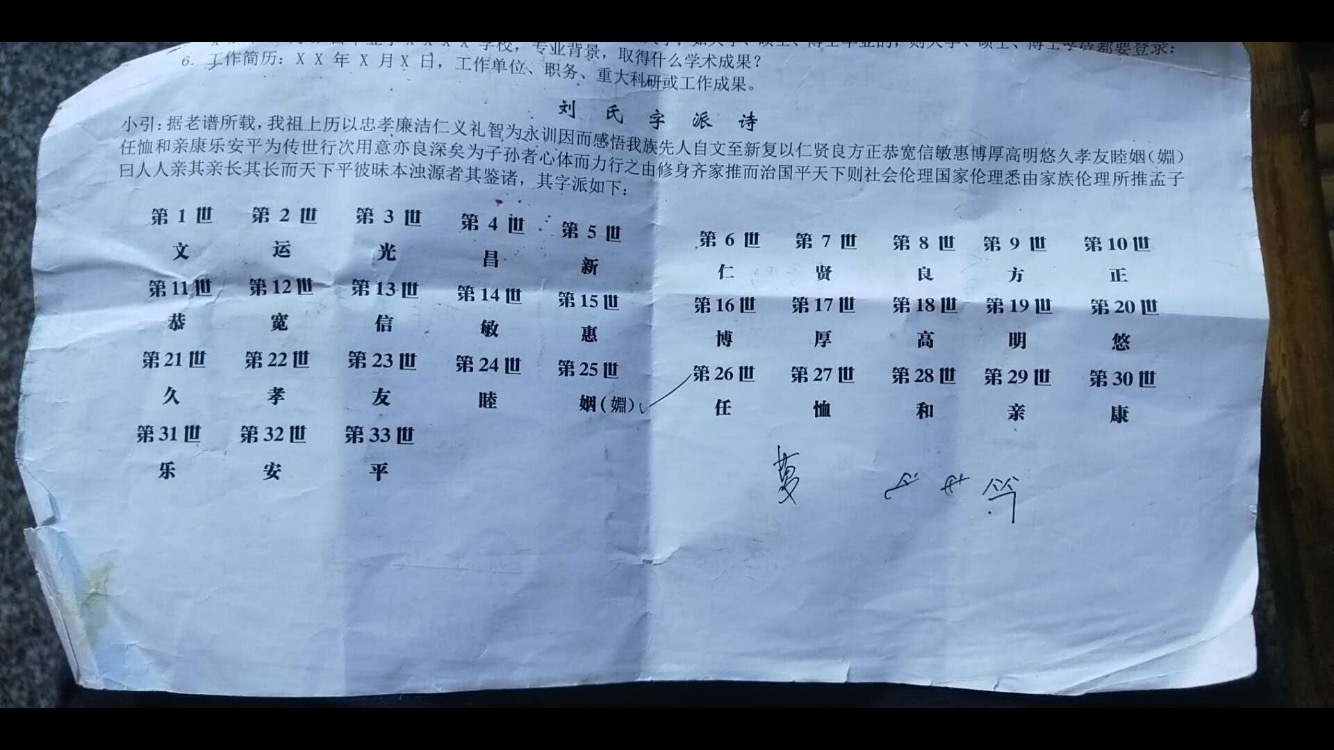 6. 工作简历：X X 年 X 月 X 日，工作单位、职务、重大科研或工作成果。
学校，专业背景，取得什么学术成果？
刘 氏 字 派 诗
小引：据老谱所载，我祖上历以忠孝廉洁仁义礼智为永训因而感悟我族先人自文至新复以仁贤良方正恭宽信敏惠博厚高明悠久孝友睦姻（婣）
任恤和亲康乐安平为传世行次用意亦良深矣为子孙者心体而力行之由修身齐家推而治国平天下则社会伦理国家伦理悉由家族伦理所推孟子
曰人人亲其亲长其长而天下平彼昧本浊源者其鉴诸，其字派如下：
第 1 世 第 2 世 第 3 世 第 4 世 第 5 世 第 6 世 第 7 世 第 8 世 第 9 世 第 10 世
文 运 光 昌 新 仁 贤 良 方 正
第 11 世 第 12 世 第 13 世 第 14 世 第 15 世 第 16 世 第 17 世 第 18 世 第 19 世 第 20 世
恭 宽 信 敏 惠 博 厚 高 明 悠
第 21 世 第 22 世 第 23 世 第 24 世 第 25 世 第 26 世 第 27 世 第 28 世 第 29 世 第 30 世
久 孝 友 睦 姻（婣） 任 恤 和 亲 康
第 31 世 第 32 世 第 33 世
乐 安 平